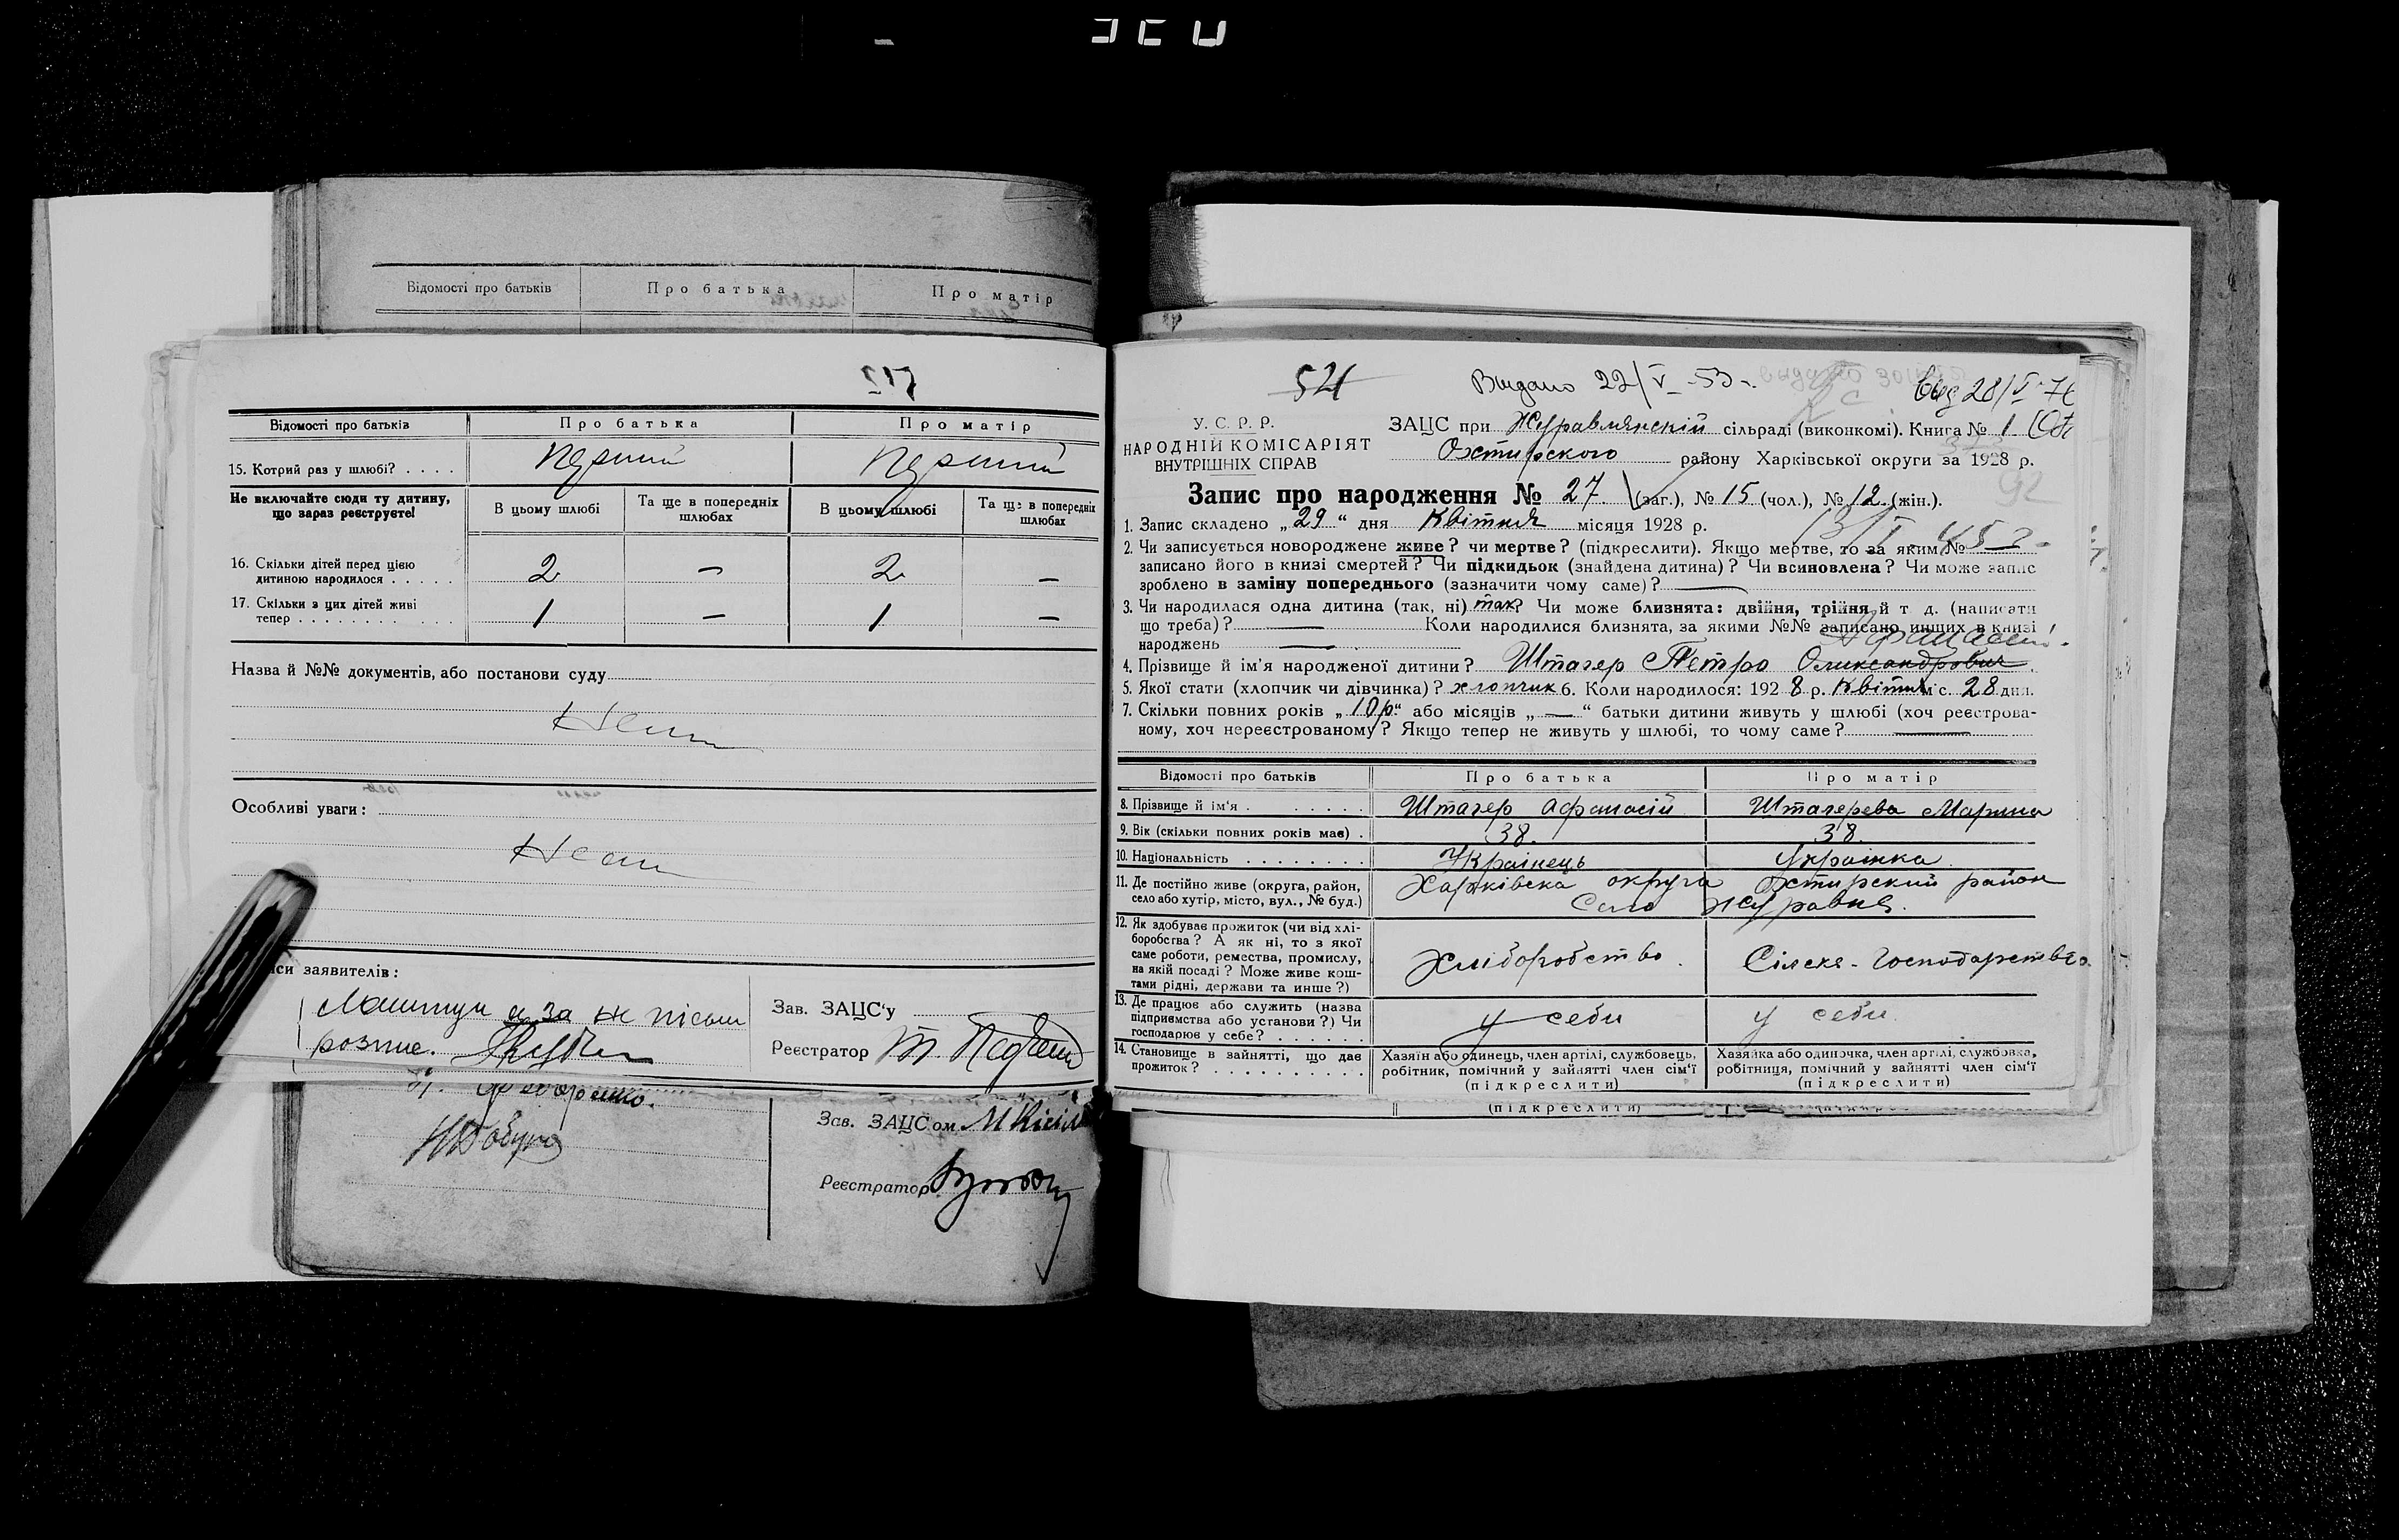 Відомості про батьків Про батька Про матір
Відомості про батьків Про батька Про матір
15. Котрий раз у шлюбі? . . . . перший перший
Не включайте сюди ту дитину, що зараз реєструєте!
В цьому шлюбі Та ще в попередніх шлюбах В цьому шлюбі Та ще в попередніх шлюбах
16. Скільки дітей перед цією
дитиною народилося . . . . . 2 — 2 —
17. Скільки з цих дітей живі
тепер . . . . . . . . . . . 1 — 1 —
Назва й №№ документів, або постанови суду
Нема
Особливі уваги:
Нема
си заявителів:
а за не пісьм
розпис.
Зав. ЗАЦС'у
Реєстратор
Федоренко.
Зав. ЗАЦСом М Кісіль
Реєстратор
521 Выдано 22/V-53 г. Выд 28/I-76
У. С. Р. Р.
НАРОДНІЙ КОМІСАРІЯТ
ВНУТРІШНІХ СПРАВ
ЗАЦС при Журавлянскій сільраді (виконкомі). Книга № 1
Охтирского району Харківської округи за 1928 р.
Запис про народження № 27. (заг.), № 15 (чол.), № 12 (жін.).
1. Запис складено „29“ дня Квітня місяця 1928 р.
2. Чи записується новороджене живе? чи мертве? (підкреслити). Якщо мертве, то за яким №
записано його в книзі смертей? Чи підкидьок (знайдена дитина)? Чи всиновлена? Чи може запис
зроблено в заміну попереднього (зазначити чому саме)? —
3. Чи народилася одна дитина (так, ні) так? Чи може близнята: двійня, трійня й т д. (написати
що треба)? — Коли народилися близнята, за якими №№ записано инших в книзі
народжень —
4. Прізвище й ім'я народженої дитини? Штагер Петро Олександрович
5. Якої стати (хлопчик чи дівчинка)? хлопчик 6. Коли народилося: 1928 р. Квітня м'с. 28 дня.
7. Скільки повних років „10р.“ або місяців „—“ батьки дитини живуть у шлюбі (хоч реєстрова-
ному, хоч нереєстрованому? Якщо тепер не живуть у шлюбі, то чому саме? —
Відомості про батьків Про батька Про матір
8. Прізвище й ім'я . . . . . . Штагер Афанасій Штагерева Марина
9. Вік (скільки повних років має) . 38. 38.
10. Національність . . . . . . . . Українець Українка.
11. Де постійно живе (округа, район,
село або хутір, місто, вул., № буд.)
Харківска округа Охтирский район
Село Журавне.
12. Як здобуває прожиток (чи від хлі-
боробства? А як ні, то з якої
саме роботи, ремества, промислу,
на якій посаді? Може живе кош-
тами рідні, держави та инше?)
Хліборобство. Сілске-Господарство.
13. Де працює або служить (назва
підприємства або установи?) Чи
господарює у себе? . . . . . .
у себи у себи
14. Становище в зайнятті, що дає
прожиток? . . . . . . . . . .
Хазяїн або одинець, член артілі, службовець,
робітник, помічний у зайнятті член сім'ї
(підкреслити)
Хазяйка або одиночка, член артілі, службовка,
робітниця, помічний у зайнятті член сім'ї
(підкреслити)
(підкреслити)